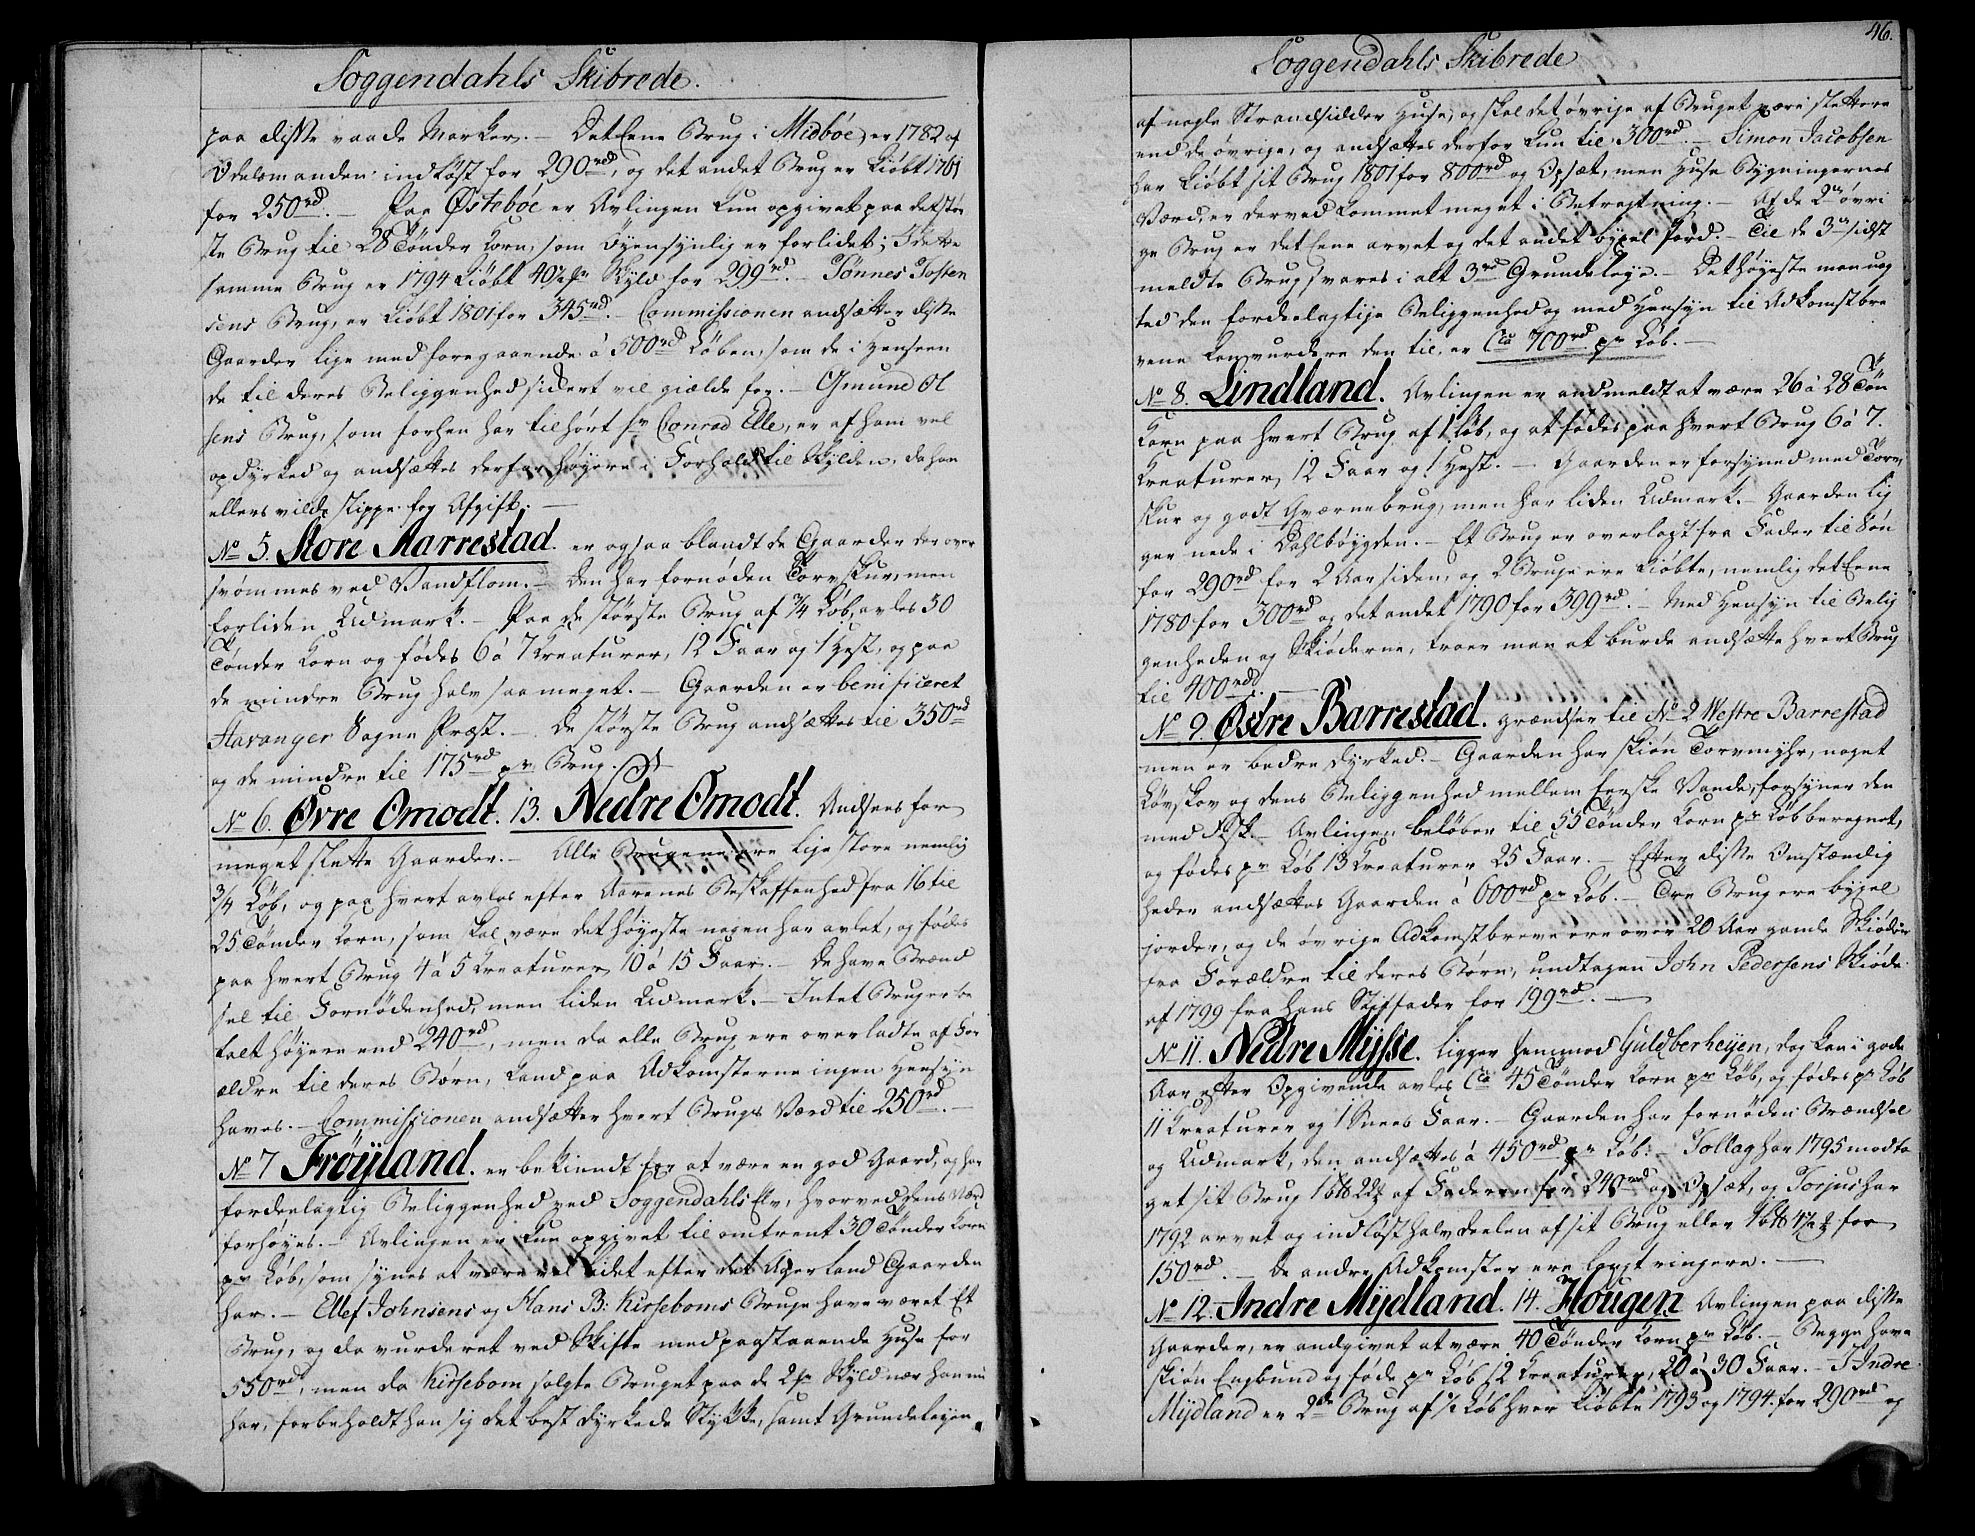 Soggendahls Skibrede.
paa disse vaade Marker. — Det Ene Brug i Midbøe, er 1782 af
Odelsmanden indløst for 290 rd, og det andet Brug er kiøbt 1761
for 250 rd. — Paa Østebøe er Avlingen kun opgivet paa det stør
ste Brug til 28 Tønder Korn, som øyensynlig er forlidet; I dette
samme Brug er 1794 kiøbt Skyld for 299 rd. — Tønnes Tosten
sens Brug, er kiøbt 1801 for 345 rd. — Commissionen andsætter disse
Gaarder lige med foregaaende á 500 rd Løben, som de i henseen
de til deres Beliggenhed sikkert vil gielde for. — Gmund Ol
sens Brug, som forhen har tilhørt Hr Conrad Elle, er af ham vel
opdyrked og andsættes derfor høyere i Forhold til Skylden, da han
ellers vilde slippe for Afgift. —
No 5. Store Aarrestad. er ogsaa blandt de Gaarder der over
svømmes ved Vandflom. — Den har fornøden Torvskur, men
forliden Udmark. — Paa de største Brug af 3/4 Løb, avles 30
Tønder Korn og fødes 6 á 7 Kreaturer, 12 Faar og 1 Hest, og paa
de mindre Brug halv saa meget. — Gaarden er benificeret
Stavanger Sogne Præst. — De største Brug andsættes til 350 rd
og de mindre til 175 rd pr Brug. —
No 6. Øvre Omodt. 13. Nedre Omodt. Andsees for
meget slette Gaarder. — Alle Brugene ere lige store nemlig
3/4 Løb, og paa hvert avles efter Aarenes Beskaffenhed fra 16 til
25 Tønder Korn, som skal være det høyeste nogen har avlet, og fødes
paa hvert Brug 4 á 5 Kreaturer, 10 á 15 Faar. — De have Brænd
sel til Fornødenhed, men liden Udmark. — Intet Brug er be
talt høyere end 240 rd, men da alle Brug ere overladte af For
ældre til deres Børn, kand paa Adkomsterne ingen Hensyn
haves. — Commissionen andsætter hvert Brugs Værd til 250 rd. —
No 7 Frøyland. er bekiendt for at være en god Gaard, og har
fordeelagtig Beliggenhed ved Soggendahls Elv, hvorved dens Værd
forhøyes. — Avlingen er kun opgivet til omtrent 30 Tønder Korn
pr Løb, som synes at være vel lidet efter det Agerland Gaarden
har. — Ellef Johnsens og Hans B: Kirseboms Bruge have været Et
Brug, og da vurderet ved Skifte med paastaaende Huse for
550 rd, men da Kirsebom solgte Bruget paa de Skyld nær han nu
har, forbeholdt han sig det best dyrkede Stykke, samt Grundeleyen
46.
Soggendahls Skibrede
af nogle Strandsidder Huse, og skal det øvrige af Bruget være slettere
end de øvrige, og andsættes derfor kun til 300 rd. — Simon Jacobsen
har kiøbt sit Brug 1801 for 800 rd og Opsæt, men Huse Bygningernes
Værd, er derved kommet meget i Betragtning. — Af de 2de øvri
ge Brug er det Eene arvet og det andet bygsel Jord. — Til de 3de sidst
meldte Brug svares i alt 3 rd Grundeleye. — Det høyeste man uag
ted den fordeelagtige Beliggenhed og med Hensyn til Adkomstbre
vene kan vurdere den til, er Ca 700 rd pr Løb. —
No 8. Lindland. Avlingen er andmeldt at være 26 á 28 Tøn
Korn paa hvert Brug af 1 Løb, og at fødes paa hvert Brug 6 á 7.
Kreaturer, 12 Faar og 1 Hest. — Gaarden er forsyned med Torv
skur og godt Qværnebrug, men har liden Udmark. — Gaarden lig
ger nede i Dahlbøygden. — Et Brug er overlagt fra Fader til Søn
for 290 rd for 2 Aar siden, og 2 Bruge ere kiøbte, nemlig det Eene
1780 for 300 rd og det andet 1790 for 399 rd. — Med Hensyn til Belig
genheden og Skiøderne, troer man at burde andsætte hvert Brug
til 400 rd. —
No 9. Østre Barrestad. grændser til No 2 Westre Barrestad
men er bedre dyrked. — Gaarden har skiøn Torvmyhr, noget
Løvskov og dens Beliggenhed mellem ferske Vande, forsyner den
med Fisk. — Avlingen beløber til 55 Tønder Korn pr Løb beregnet,
og fødes pr Løb 13 Kreaturer 25 Faar. — Efter disse Omstændig
heder andsættes Gaarden á 600 rd pr Løb. — Tre Brug ere bygsel
jorder, og de øvrige Adkomstbreve ere over 20 Aar gamle Skiøder
fra Forældre til deres Børn, undtagen John Pedersens Skiøde
af 1799 fra hans Stiffader for 199 rd. —
No 11. Nedre Mysse. ligger hen mod Guldberheyen, dog kan i gode
Aar efter Opgivende avles Ca 45 Tønder Korn pr Løb, og fødes pr Løb
11 Kreaturer og 1 Snees Faar. — Gaarden har fornøden Brændsel
og Udmark, den andsættes á 450 rd pr Løb: — Tollag har 1795 modta
get sit Brug af Faderen for 240 rd og Opsæt, og Torjus har
1792 arvet og indløst halvdeelen af sit Brug eller for
150 rd. — De andre Adkomster ere langt ringere. —
No 12. Indre Mydland. 14. Hougen Avlingen paa disse
Gaarder, er andgivet at være 40 Tønder Korn pr Løb. — Begge have
skiøn Engbund og føde pr Løb 12 Kreaturer, 20 á 30 Faar. — I Indre
Mydland er 2de Brug af 1/2 Løb hver kiøbte 1793 og 1794. for 290 rd og